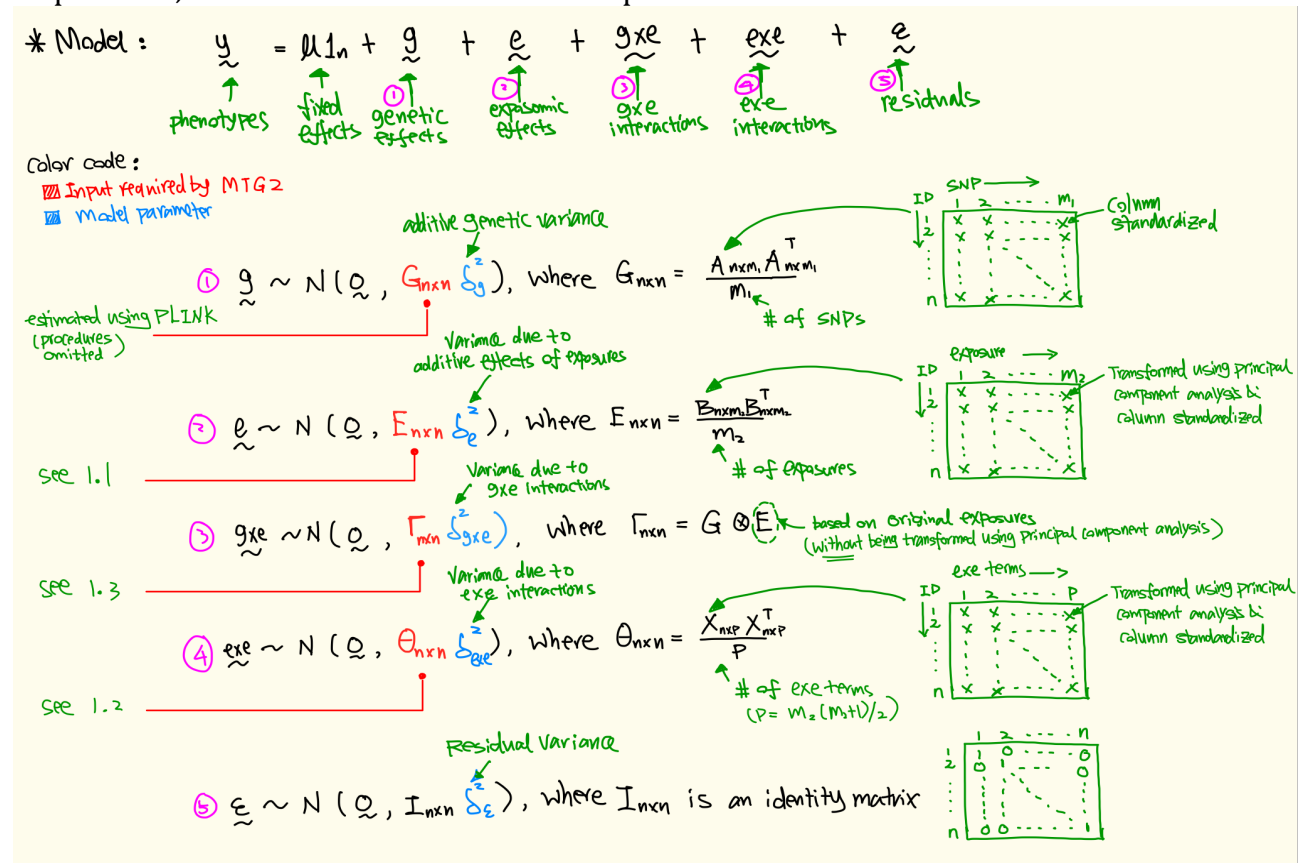 * Model : y = μ1n + g + e + gxe + exe + ε
① ② ③ ④ ⑤
phenotypes
fixed effects
genetic effects
exposomic effects
gxe interactions
exe interactions
residuals
Color code :
Input required by MTG2
Model parameter
additive genetic variance
① g ~ N ( 0 , Gnxn δg² ), where Gnxn = Anxm₁ Anxm₁ᵀ / m₁
# of SNPs
estimated using PLINK
(procedures
omitted )
SNP
ID 1 2 ---- m₁
1 x x ---- x
2 x x ---- x
n x x ---- x
Column
standardized
Variance due to
additive effects of exposures
② e ~ N ( 0 , Enxn δe² ), where Enxn = Bnxm₂ Bnxm₂ᵀ / m₂
# of exposures
see 1.1
exposure
ID 1 2 ---- m₂
1 x x ---- x
2 x x ---- x
n x x ---- x
Transformed using principal
component analysis &
column standardized
Variance due to
gxe interactions
③ gxe ~ N ( 0 , Γnxn δgxe² ), where Γnxn = G ⊗ E
based on original exposures
(without being transformed using principal component analysis)
see 1.3
Variance due to
exe interactions
④ exe ~ N ( 0 , θnxn δexe² ), where θnxn = Xnxp Xnxpᵀ / P
# of exe terms
(p= m₂ (m₂+1)/2)
see 1.2
exe terms
ID 1 2 ---- P
1 x x ---- x
2 x x ---- x
n x x ---- x
Transformed using principal
component analysis &
column standardized
Residual Variance
⑤ ε ~ N ( 0 , Inxn δε² ), where Inxn is an identity matrix
1 2 ---- n
1 1 0 ---- 0
2 0 1 ---- 0
n 0 0 ---- 1